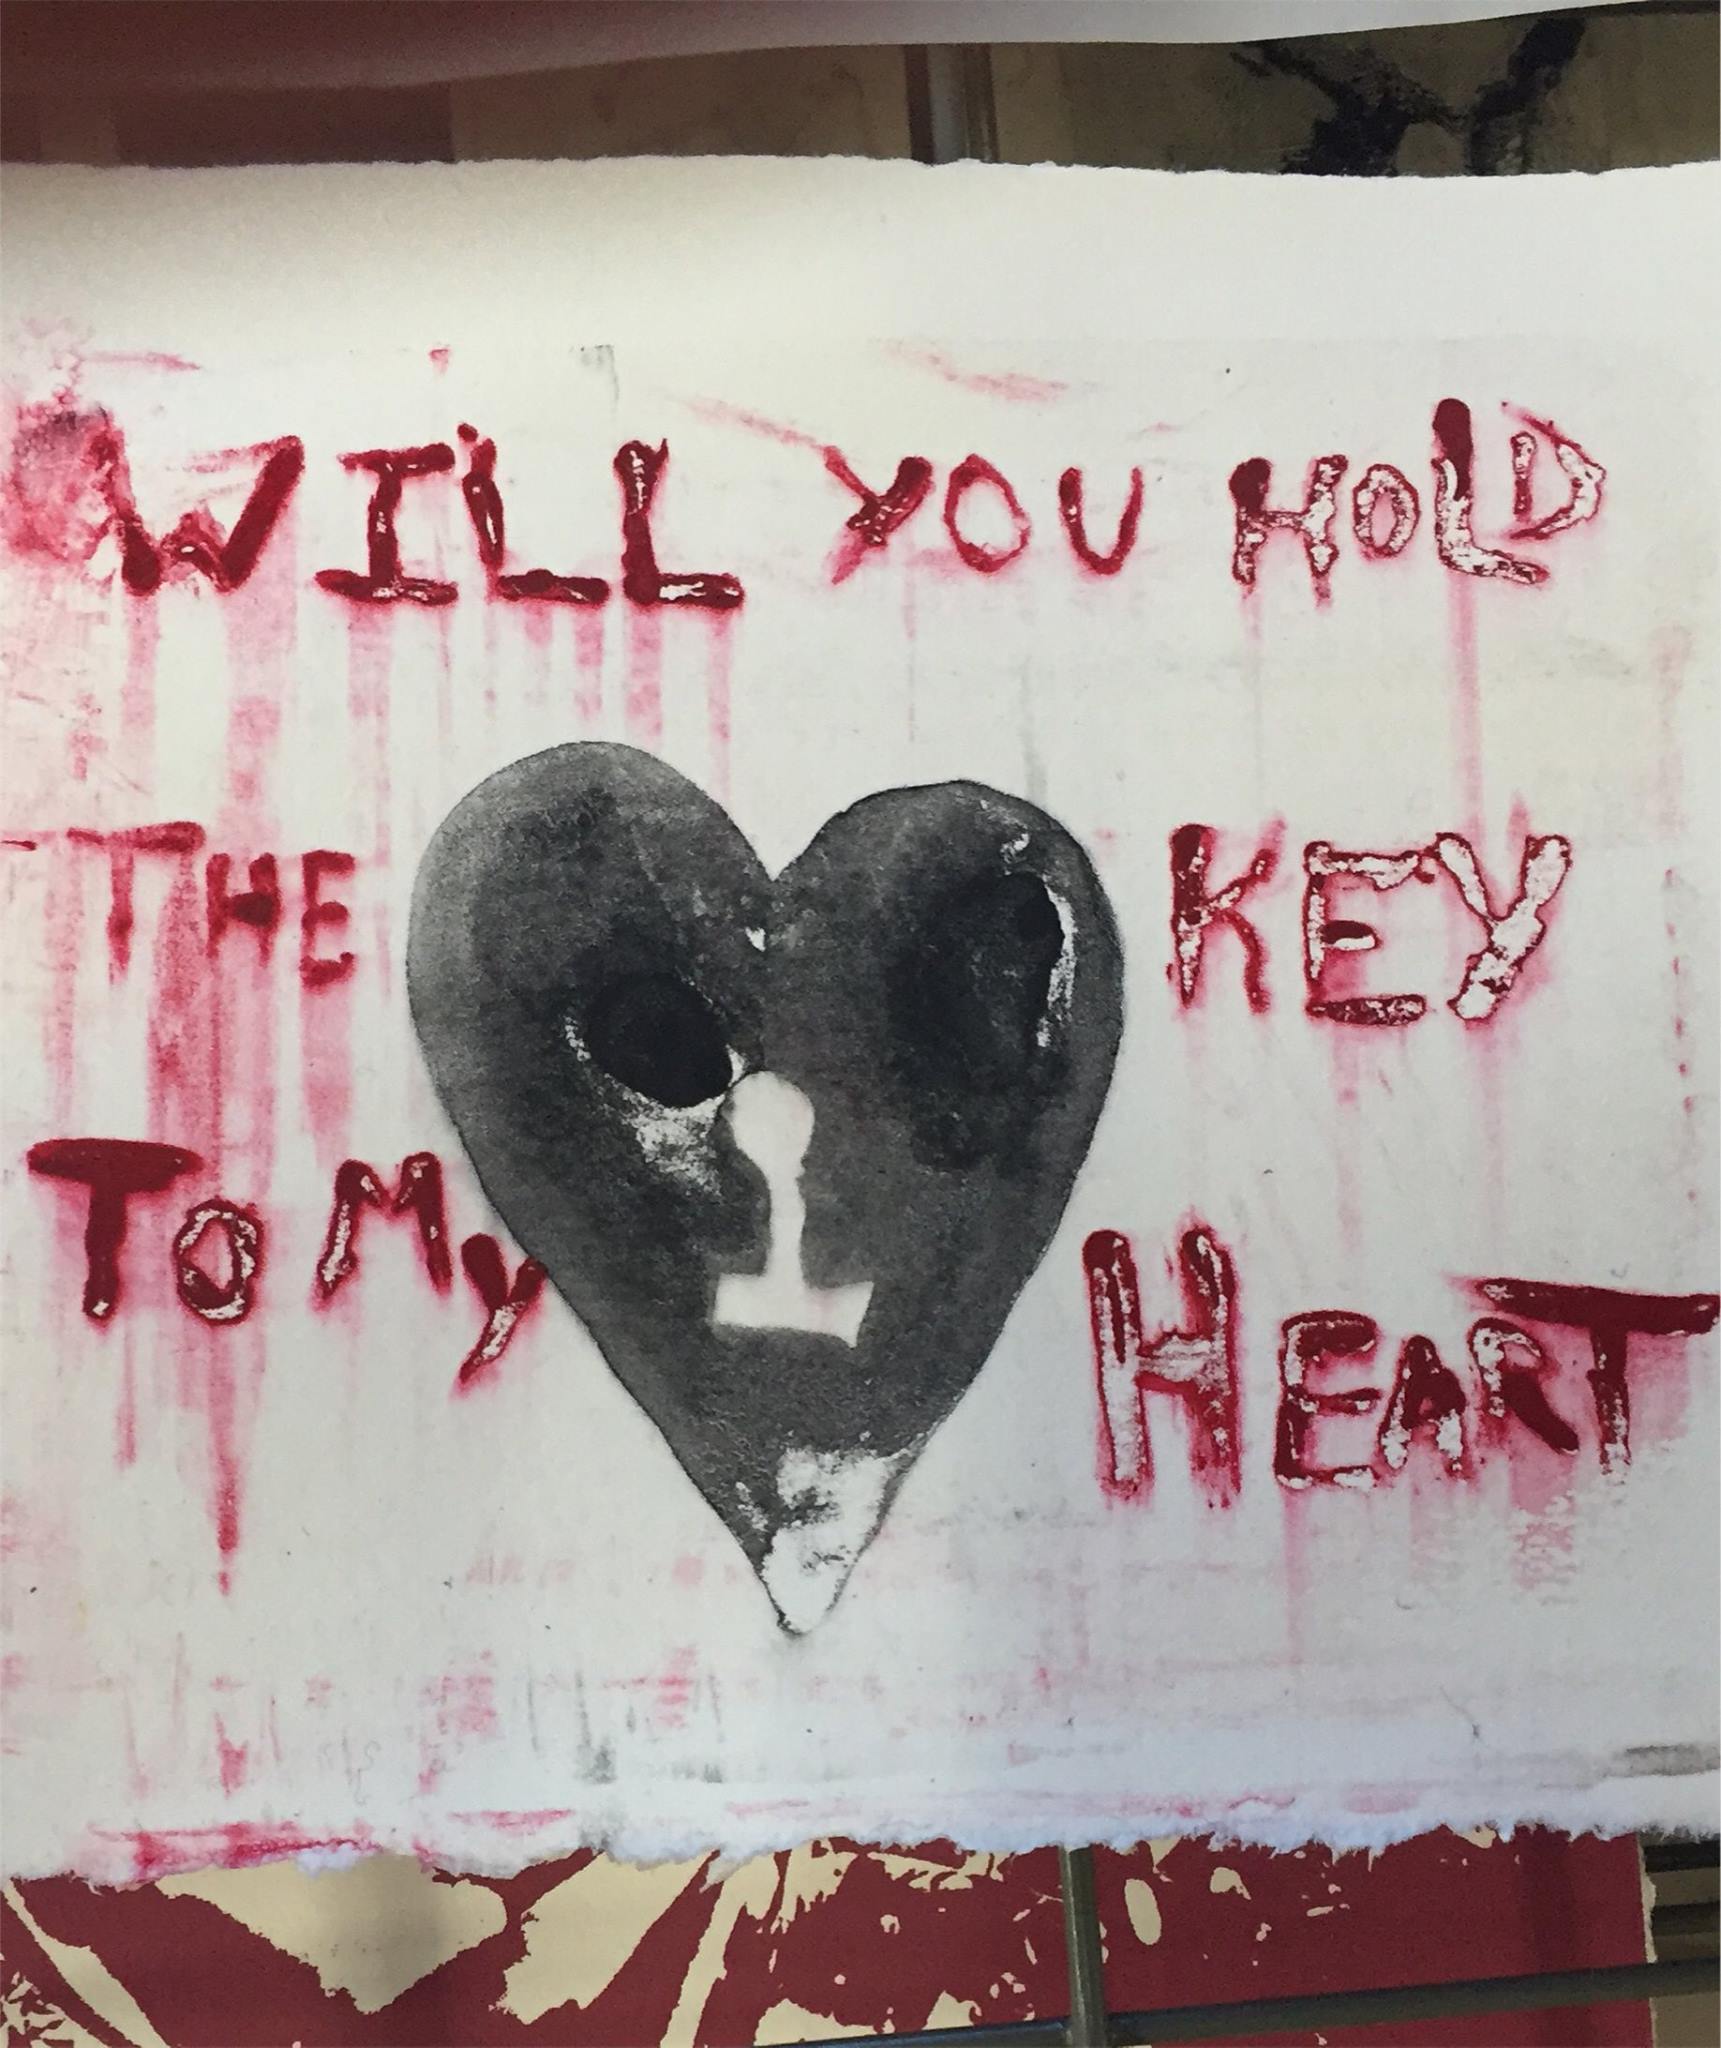 WILL YOU HOLD
THE KEY
TO MY HEART